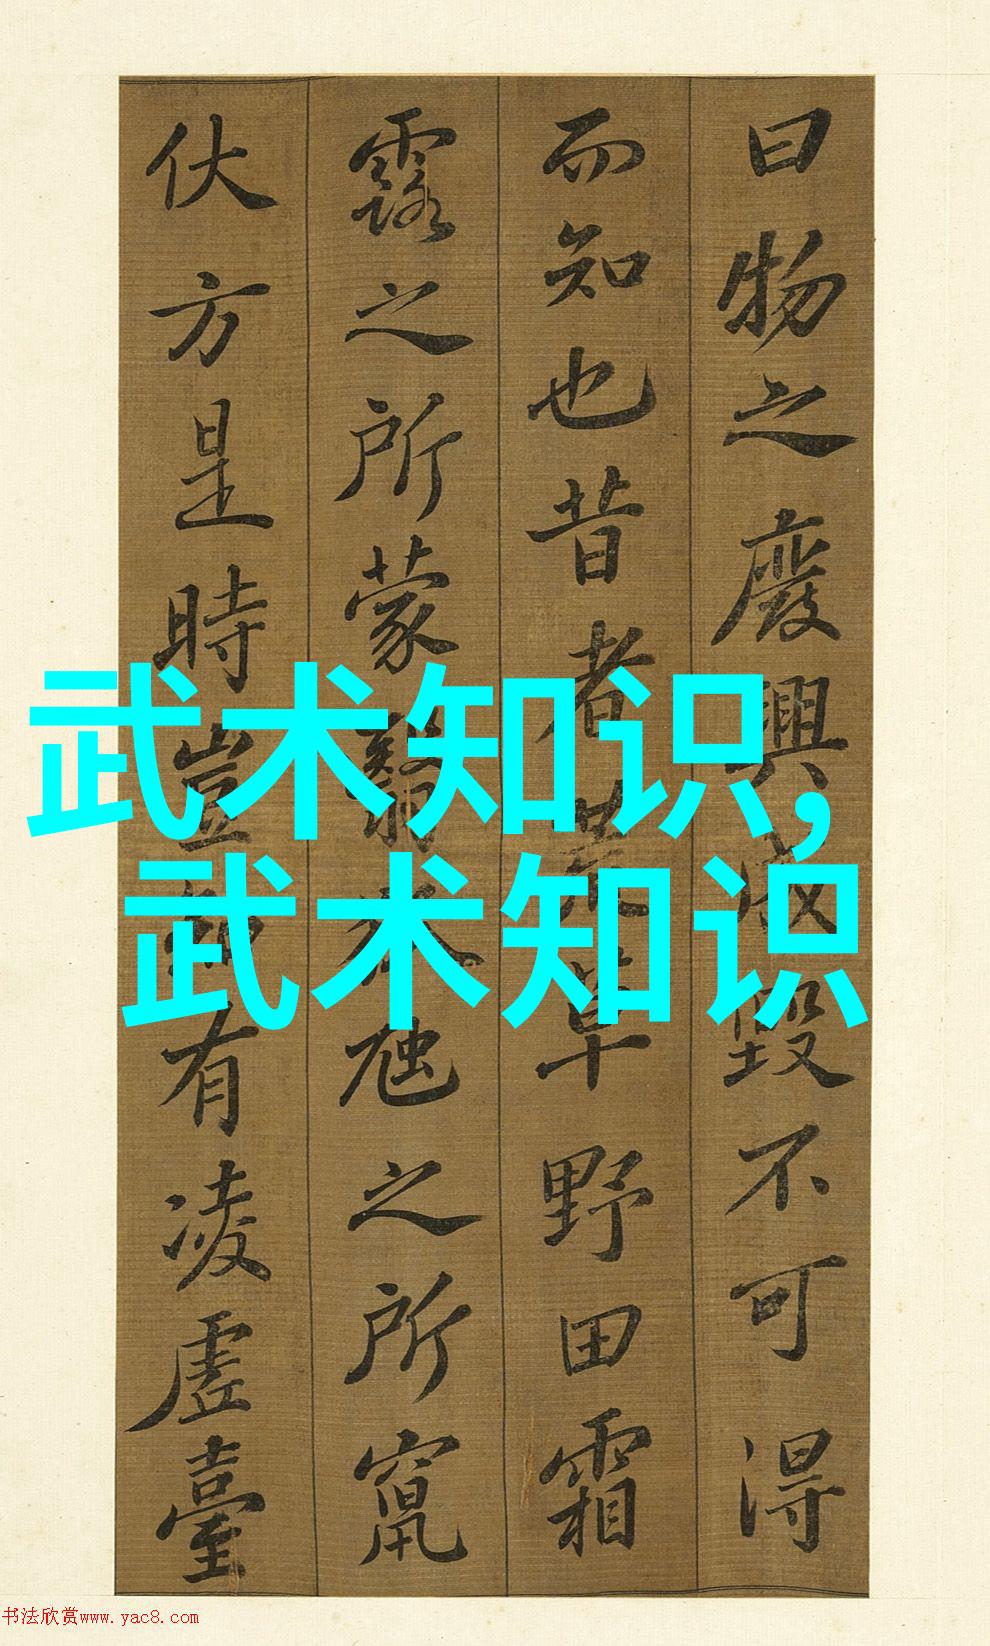 曰物之廢興成毀不可得
而知也昔者荒草野田霜
露之所蒙翳狐虺之所竄
伏方是時豈知有凌虛臺
武术知识,
武术知识
书法欣赏www.yac8.com